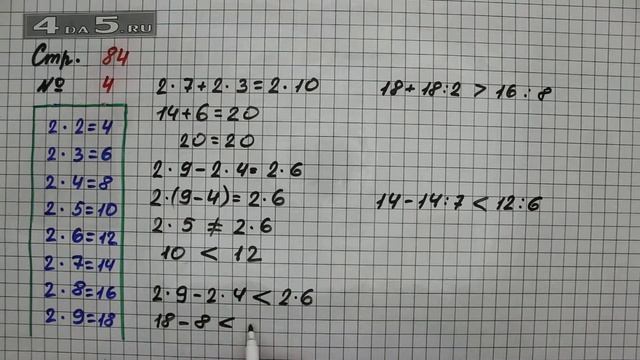 4DA5.RU
Стр. 84
№ 4
2·2=4
2·3=6
2·4=8
2·5=10
2·6=12
2·7=14
2·8=16
2·9=18
2·7+2·3=2·10
14+6=20
20=20
2·9-2·4=2·6
2·(9-4)=2·6
2·5≠2·6
10<12
2·9-2·4<2·6
18-8<
18+18:2>16:8
14-14:7<12:6